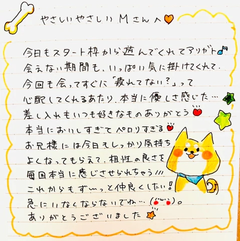 やさしいやさしい Mさんへ
今日もスタート枠から遊んでくれてアリガト
会えない期間も、いっぱい気に掛けてくれて、
今回も会ってすぐに「疲れてない?」って
心配してくれるあたり、本当に優しさ感じた…
差し入れもいつも好きなものありがとう
本当においしすぎてペロリすぎる
お兄様には今日もしっかり気持ち
よくなってもらえて、相性の良さを
毎回本当に感じさせられちゃう!!!
これからもずーっと仲良くしたい!
急にいなくならないでね…
ありがとうございました